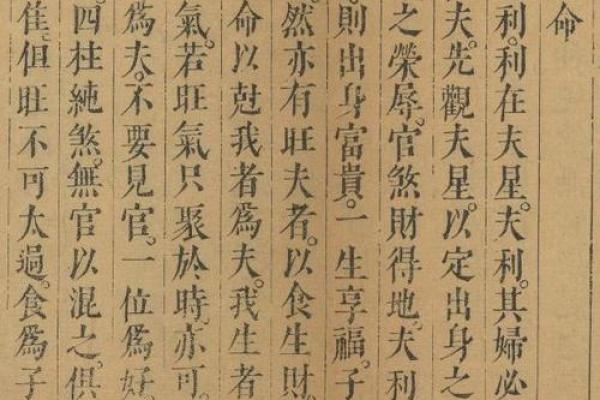 命
利。利在夫星。夫利。其婦必
夫。先觀夫星。以定出身之
之榮辱。官煞財得地。夫利
則出身富貴。一生享福。子
然亦有旺夫者。以食生財。
命以尅我者爲夫。我生者
氣。若旺氣只聚於時。亦可。
爲夫。不要見官。一位爲好。
四柱純煞。無官以混之。俱
佳。但旺不可太過。食爲子